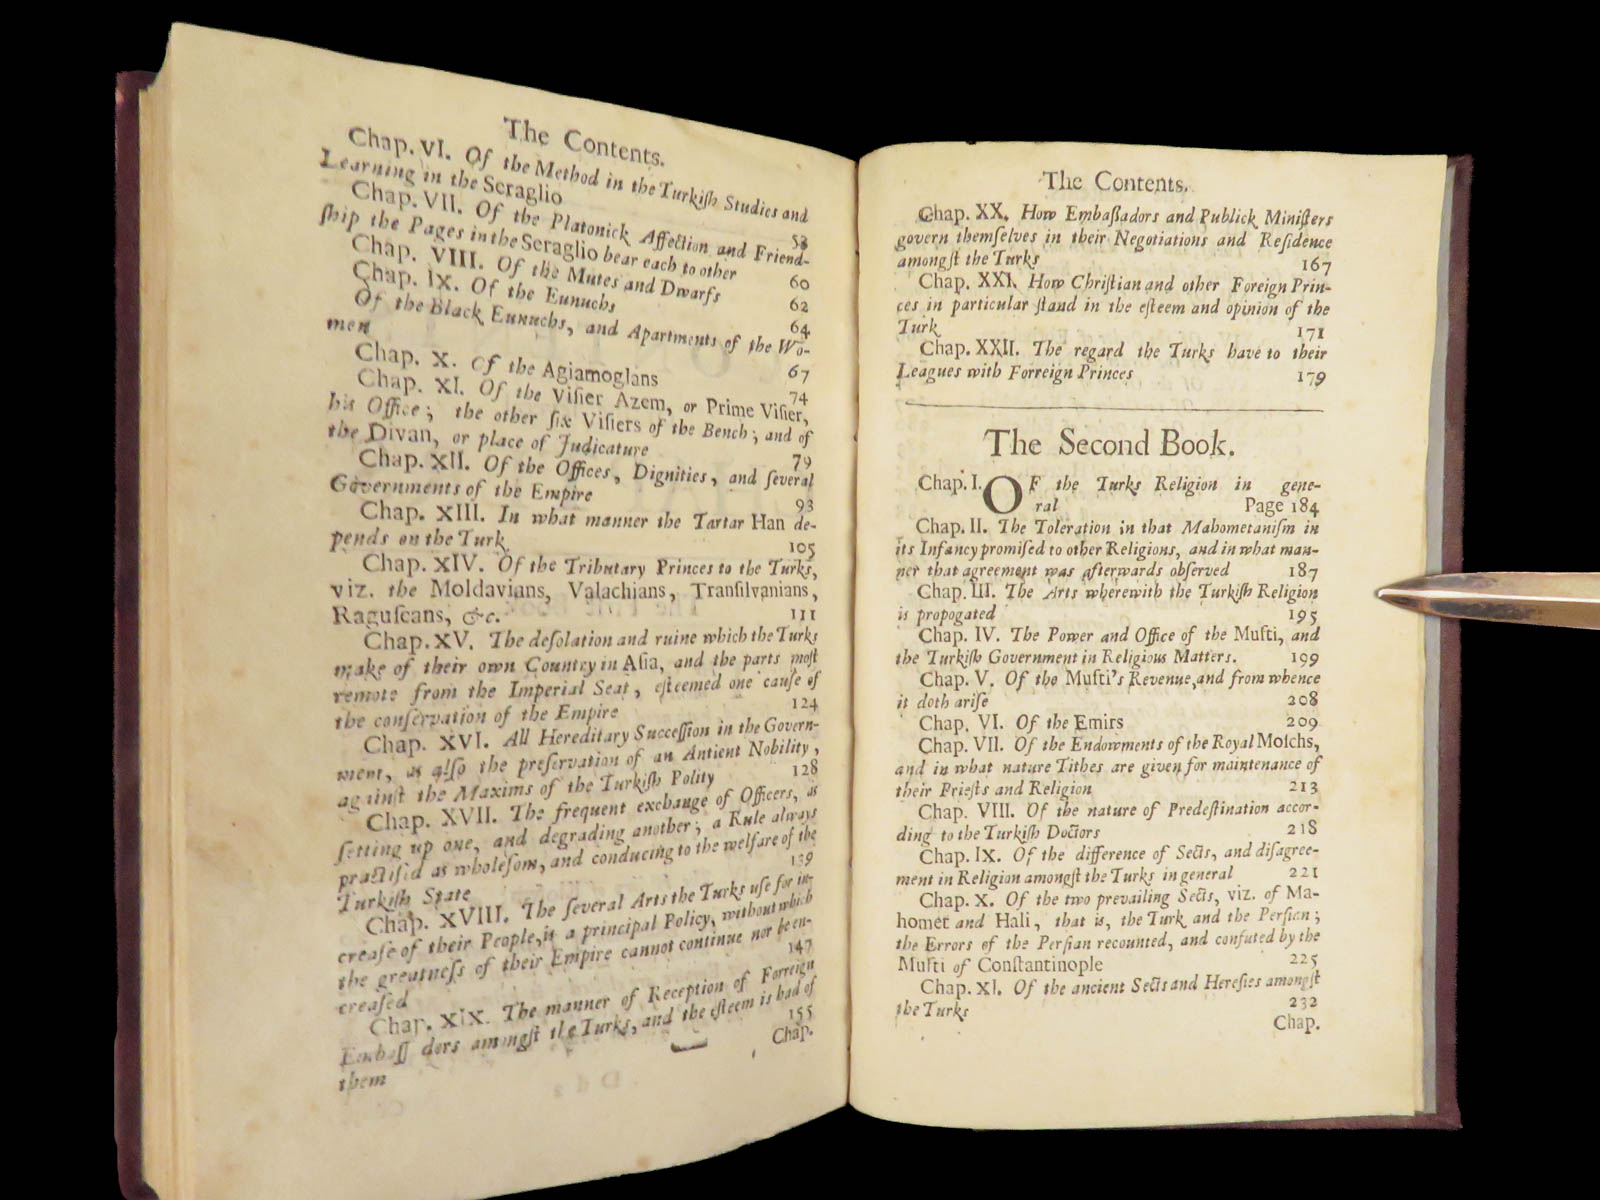 The Contents.
Chap. VI. Of the Method in the Turkiſh Studies and
Learning in the Seraglio 53
Chap. VII. Of the Platonick Affection and Friend-
ſhip the Pages in the Seraglio bear each to other 60
Chap. VIII. Of the Mutes and Dwarfs 62
Chap. IX. Of the Eunuchs 64
Of the Black Eunuchs, and Apartments of the Wo-
men 67
Chap. X. Of the Agiamoglans 74
Chap. XI. Of the Viſier Azem, or Prime Viſier,
his Office; the other ſix Viſiers of the Bench; and of
the Divan, or place of Judicature 79
Chap. XII. Of the Offices, Dignities, and ſeveral
Governments of the Empire 93
Chap. XIII. In what manner the Tartar Han de-
pends on the Turk 105
Chap. XIV. Of the Tributary Princes to the Turks,
viz. the Moldavians, Valachians, Tranſilvanians,
Raguſcans, &c. 111
Chap. XV. The deſolation and ruine which the Turks
make of their own Country in Aſia, and the parts moſt
remote from the Imperial Seat, eſteemed one cauſe of
the conſervation of the Empire 124
Chap. XVI. All Hereditary Succeſſion in the Govern-
ment, as alſo the preſervation of an Antient Nobility,
againſt the Maxims of the Turkiſh Polity 128
Chap. XVII. The frequent exchange of Officers, as
ſetting up one, and degrading another; a Rule always
practiſed as wholeſom, and conducing to the welfare of the
Turkiſh State 139
Chap. XVIII. The ſeveral Arts the Turks uſe for in-
creaſe of their People, is a principal Policy, without which
the greatneſs of their Empire cannot continue nor be en-
creaſed 147
Chap. XIX. The manner of Reception of Forreign
Embaſſ dors amongſt the Turks, and the eſteem is had of
them 155
Chap.
The Contents.
Chap. XX. How Embaſſadors and Publick Miniſters
govern themſelves in their Negotiations and Reſidence
amongſt the Turks 167
Chap. XXI. How Chriſtian and other Foreign Prin-
ces in particular ſtand in the eſteem and opinion of the
Turk 171
Chap. XXII. The regard the Turks have to their
Leagues with Forreign Princes 179
The Second Book.
Chap. I. OF the Turks Religion in gene-
ral Page 184
Chap. II. The Toleration in that Mahometaniſm in
its Infancy promiſed to other Religions, and in what man-
ner that agreement was afterwards obſerved 187
Chap. III. The Arts wherewith the Turkiſh Religion
is propogated 195
Chap. IV. The Power and Office of the Mufti, and
the Turkiſh Government in Religious Matters. 199
Chap. V. Of the Mufti's Revenue, and from whence
it doth ariſe 208
Chap. VI. Of the Emirs 209
Chap. VII. Of the Endowments of the Royal Moſchs,
and in what nature Tithes are given for maintenance of
their Prieſts and Religion 213
Chap. VIII. Of the nature of Predeſtination accor-
ding to the Turkiſh Doctors 218
Chap. IX. Of the difference of Sects, and diſagree-
ment in Religion amongſt the Turks in general 221
Chap. X. Of the two prevailing Sects, viz. of Ma-
homet and Hali, that is, the Turk and the Perſian;
the Errors of the Perſian recounted, and confuted by the
Mufti of Conſtantinople 225
Chap. XI. Of the ancient Sects and Hereſies amongſt
the Turks 232
Chap.